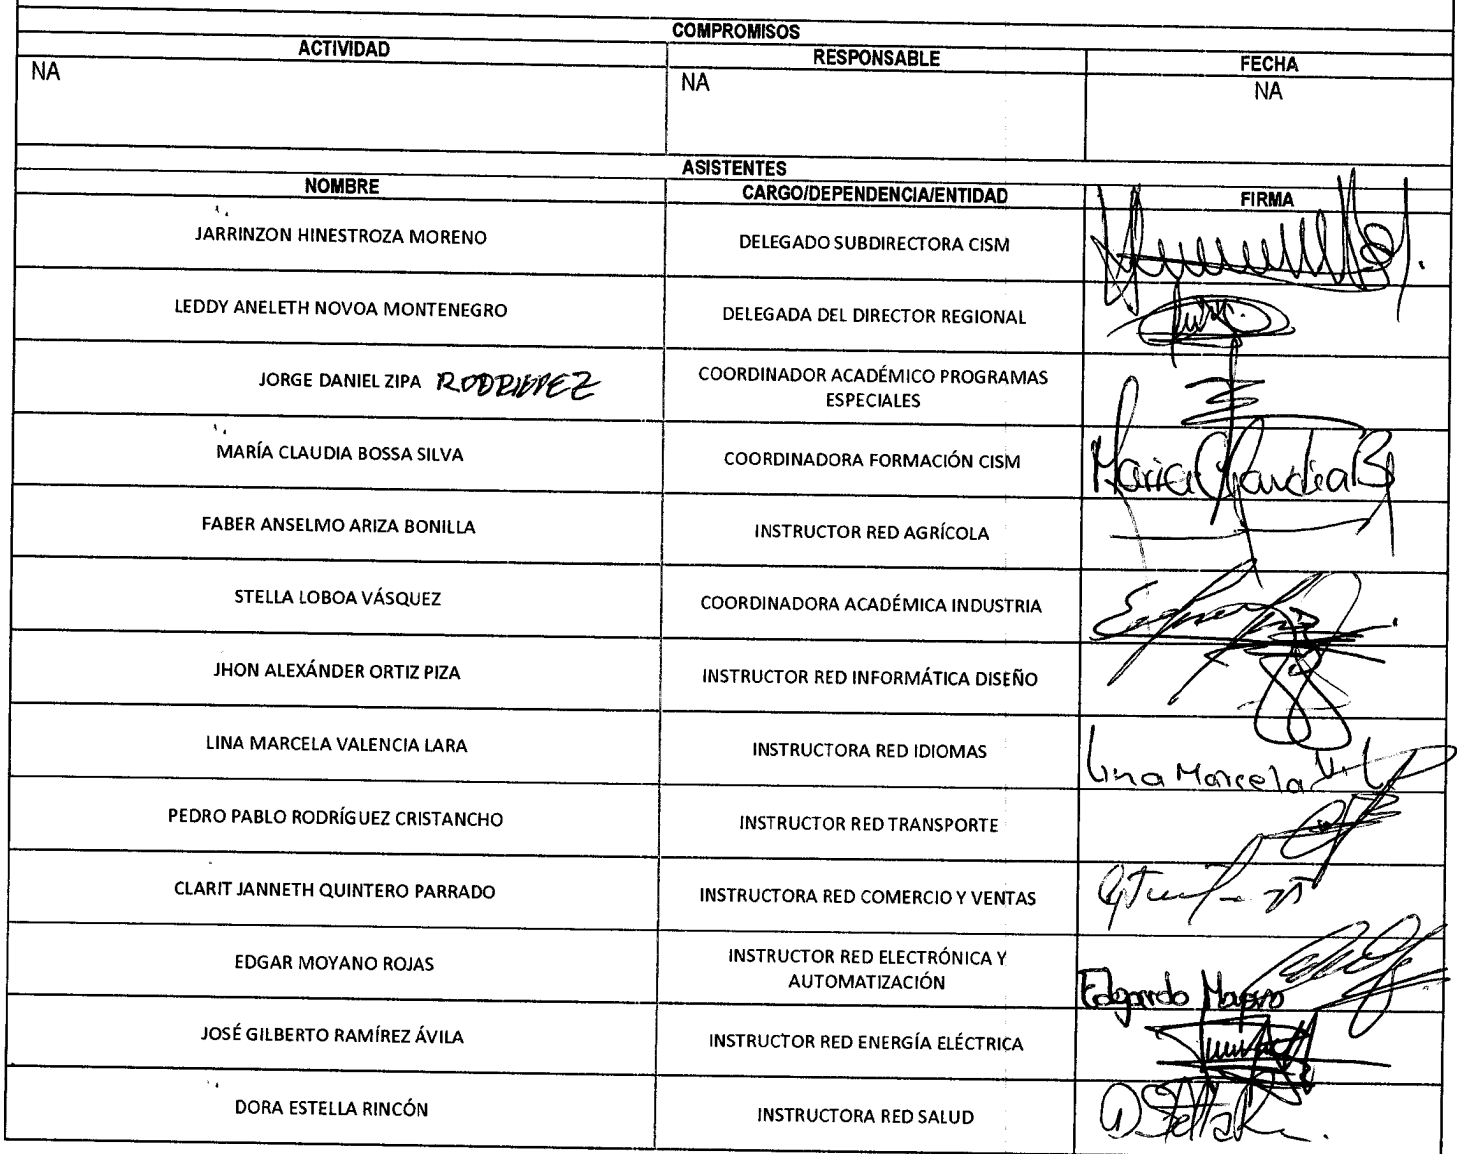 COMPROMISOS
ACTIVIDAD RESPONSABLE FECHA
NA NA NA
ASISTENTES
NOMBRE CARGO/DEPENDENCIA/ENTIDAD FIRMA
JARRINZON HINESTROZA MORENO DELEGADO SUBDIRECTORA CISM
LEDDY ANELETH NOVOA MONTENEGRO DELEGADA DEL DIRECTOR REGIONAL
JORGE DANIEL ZIPA COORDINADOR ACADÉMICO PROGRAMAS
ESPECIALES
MARÍA CLAUDIA BOSSA SILVA COORDINADORA FORMACIÓN CISM Maria Claudia B
FABER ANSELMO ARIZA BONILLA INSTRUCTOR RED AGRÍCOLA
STELLA LOBOA VÁSQUEZ COORDINADORA ACADÉMICA INDUSTRIA
JHON ALEXÁNDER ORTIZ PIZA INSTRUCTOR RED INFORMÁTICA DISEÑO
LINA MARCELA VALENCIA LARA INSTRUCTORA RED IDIOMAS Lina Marcela V. L
PEDRO PABLO RODRÍGUEZ CRISTANCHO INSTRUCTOR RED TRANSPORTE
CLARIT JANNETH QUINTERO PARRADO INSTRUCTORA RED COMERCIO Y VENTAS
EDGAR MOYANO ROJAS INSTRUCTOR RED ELECTRÓNICA Y
AUTOMATIZACIÓN Edgardo
JOSÉ GILBERTO RAMÍREZ ÁVILA INSTRUCTOR RED ENERGÍA ELÉCTRICA
DORA ESTELLA RINCÓN INSTRUCTORA RED SALUD